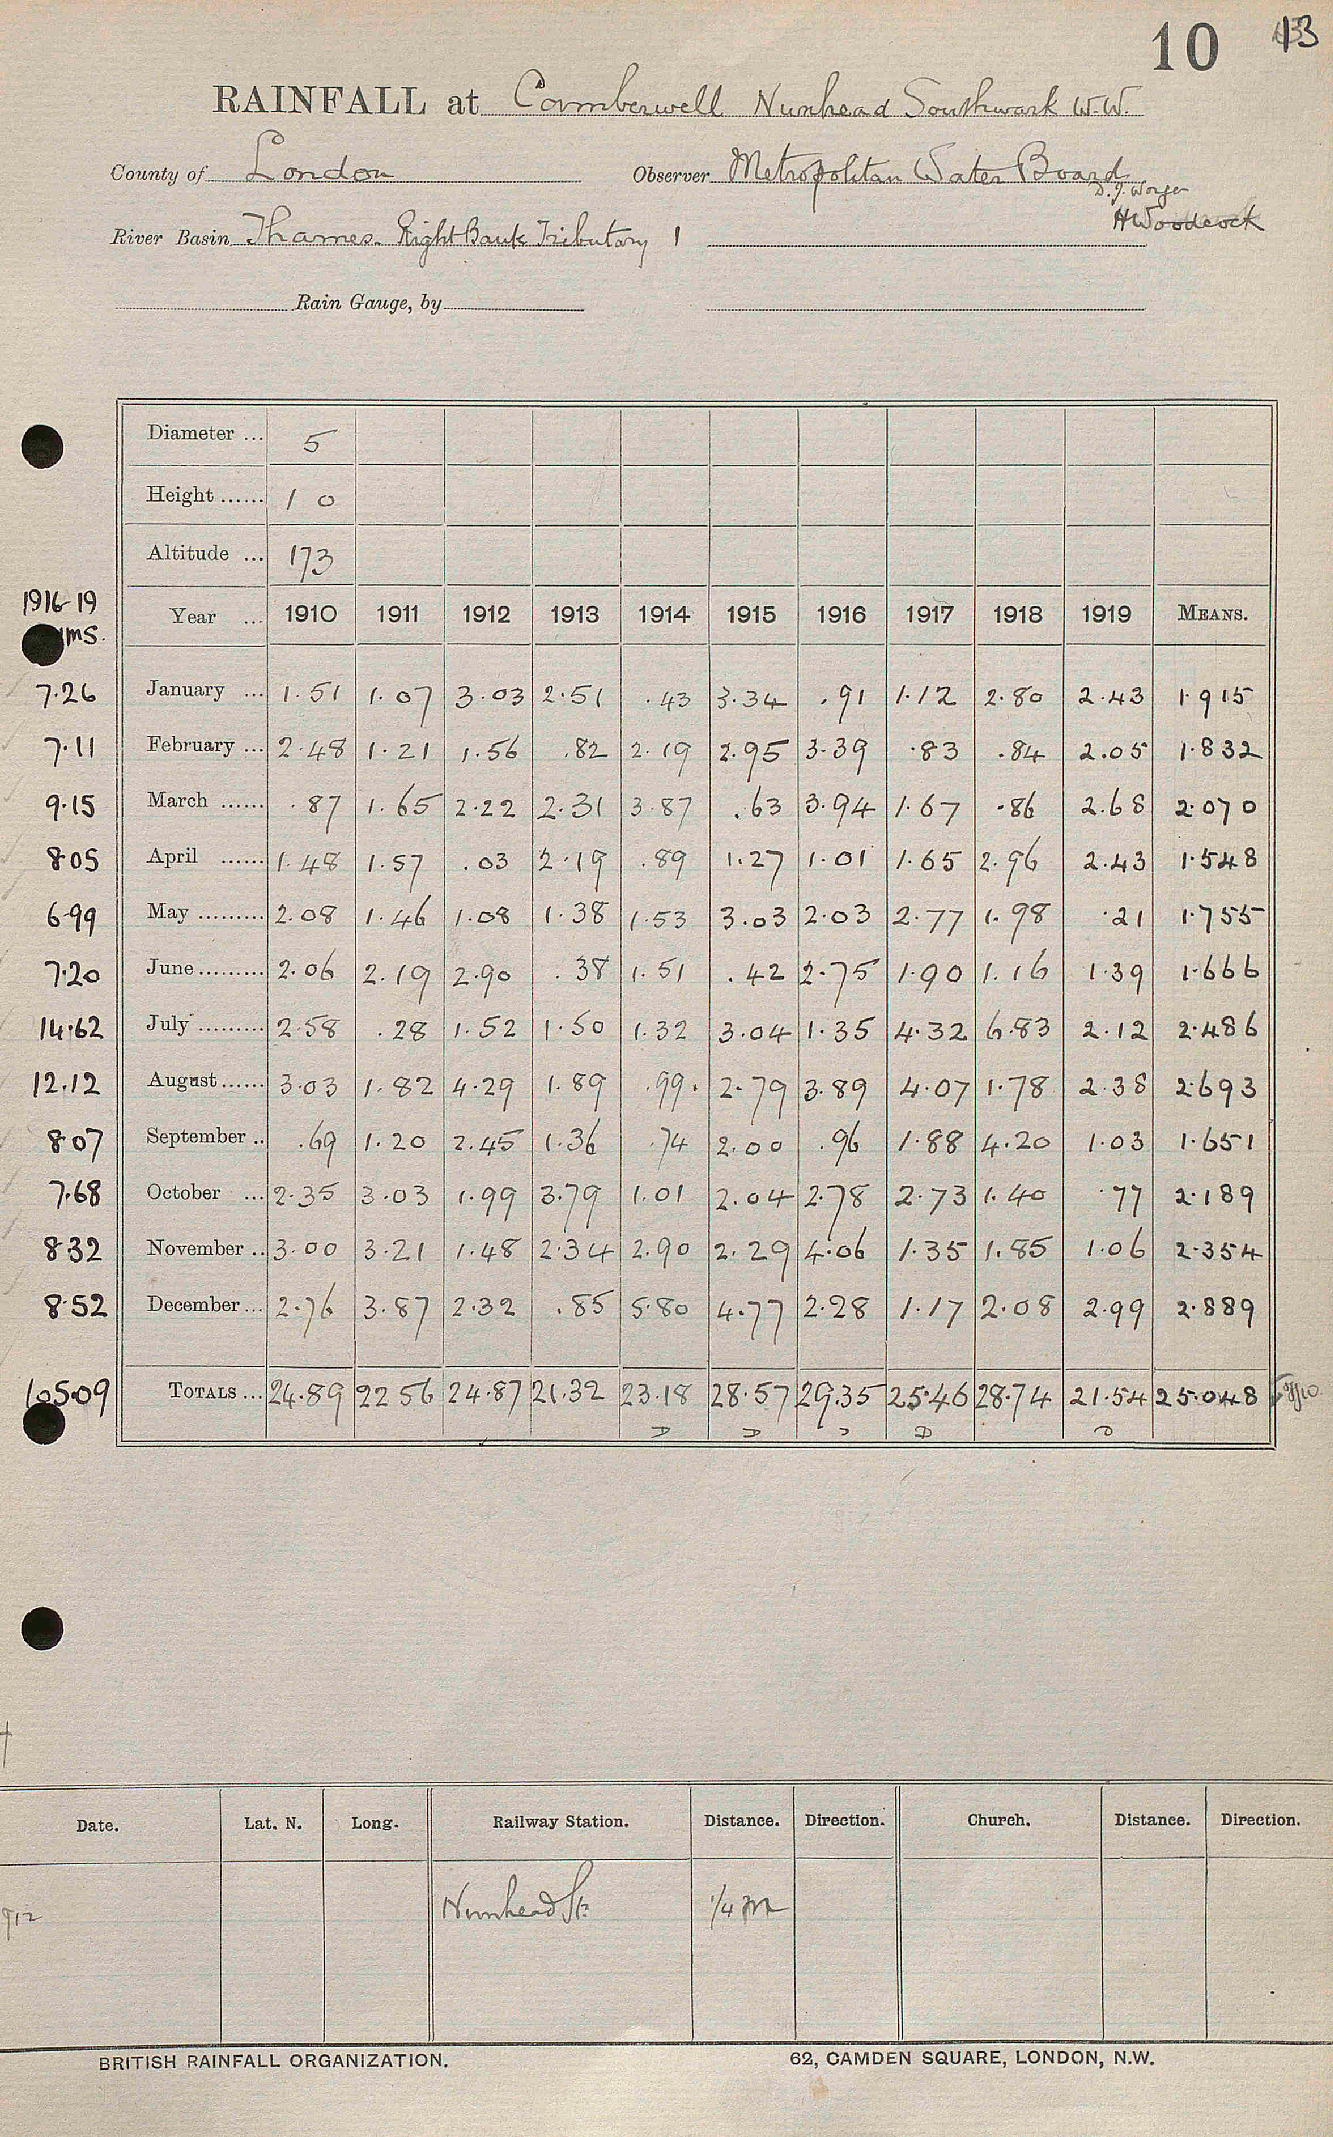 10 13
RAINFALL at Camberwell Nunhead Southwark W.W.
County of London Observer Metropolitan Water Board
D. J. Worger
River Basin Thames. Right Bank Tributary 1 H Woodcock
Rain Gauge, by
Diameter ... 5
Height ...... 1 0
Altitude ... 173
1916-19 Year ... 1910 1911 1912 1913 1914 1915 1916 1917 1918 1919 MEANS.
7.26 January ... 1.51 1.07 3.03 2.51 .43 3.34 .91 1.12 2.80 2.43 1.915
7.11 February ... 2.48 1.21 1.56 .82 2.19 2.95 3.39 .83 .84 2.05 1.832
9.15 March ...... .87 1.65 2.22 2.31 3.87 .63 3.94 1.67 .86 2.68 2.070
8.05 April ...... 1.48 1.57 .03 2.19 .89 1.27 1.01 1.65 2.96 2.43 1.548
6.99 May ......... 2.08 1.46 1.08 1.38 1.53 3.03 2.03 2.77 1.98 .21 1.755
7.20 June ......... 2.06 2.19 2.90 .38 1.51 .42 2.75 1.90 1.16 1.39 1.666
14.62 July ......... 2.58 .28 1.52 1.50 1.32 3.04 1.35 4.32 6.83 2.12 2.486
12.12 August ...... 3.03 1.82 4.29 1.89 .99. 2.79 3.89 4.07 1.78 2.38 2.693
8.07 September .. .69 1.20 2.45 1.36 .74 2.00 .96 1.88 4.20 1.03 1.651
7.68 October ... 2.35 3.03 1.99 3.79 1.01 2.04 2.78 2.73 1.40 .77 2.189
8.32 November .. 3.00 3.21 1.48 2.34 2.90 2.29 4.06 1.35 1.85 1.06 2.354
8.52 December ... 2.76 3.87 2.32 .85 5.80 4.77 2.28 1.17 2.08 2.99 2.889
105.09 TOTALS ... 24.89 22 56 24.87 21.32 23.18 28.57 29.35 25.46 28.74 21.54 25.048
Date. Lat. N. Long. Railway Station. Distance. Direction. Church. Distance. Direction.
Nunhead St. 1/4 m
BRITISH RAINFALL ORGANIZATION. 62, CAMDEN SQUARE, LONDON, N.W.